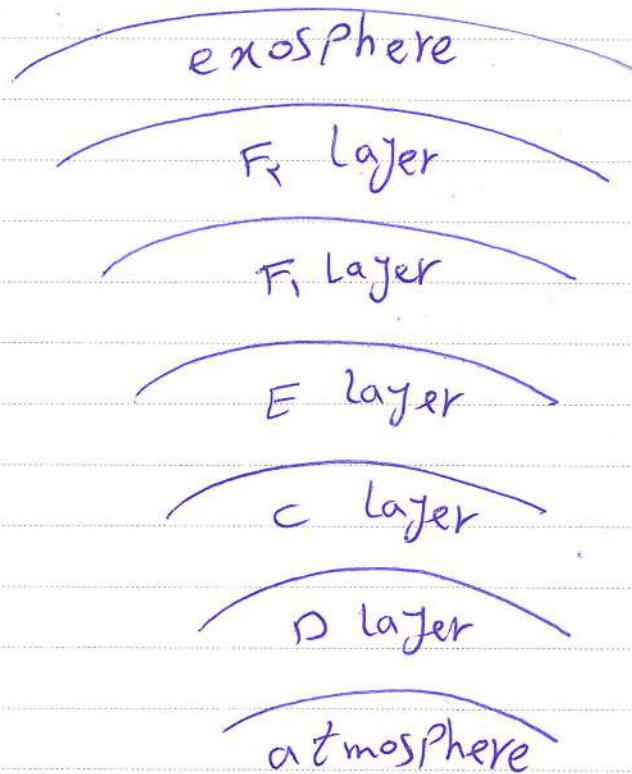 exosphere
F۲ layer
F۱ layer
E layer
C layer
D layer
atmosphere